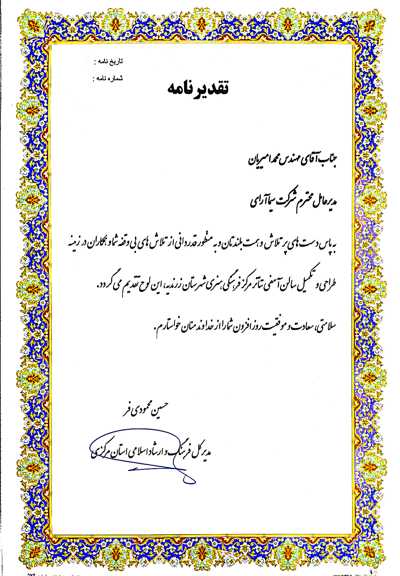 تاریخ نامه :
شماره نامه :
تقدیرنامه
جناب آقای مهندس محمد امیریان
مدیرعامل محترم شرکت سیما آرای
به پاس دست‌های پر تلاش و همت بلندتان و به منظور قدردانی از تلاش های بی وقفه شما و همکاران در زمینه
طراحی و تکمیل سالن آمفی تئاتر مرکز فرهنگی هنری شهرستان زرندیه، این لوح تقدیم می گردد.
سلامتی، سعادت و موفقیت روزافزون شما را از خداوند منان خواستارم.
حسین محمودی فر
مدیر کل فرهنگ و ارشاد اسلامی استان مرکزی